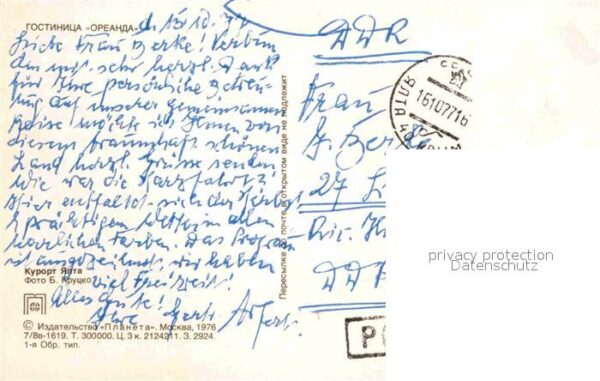 ГОСТИНИЦА «ОРЕАНДА»
d. 15.10.77
Liebe Frau Zerke! Verbun
den mit sehr herzl. Dank
für Ihre persönliche Betreu-
ung auf unserer gemeinsamen
Reise möchte ich Ihnen von
diesem traumhaft schönen
Land herzl. Grüße senden
Wie war die Harzfahrt?
Hier entfaltet sich der Herbst
b. prächtigem Wetter in allen
herrlichen Farben. Das Program
ist ausgezeichnet, wir haben
viel Freizeit!
Alles Gute!
Ihre
Курорт Ялта
Фото Б. Круцко
© Издательство «Планета». Москва, 1976
7/8в-1619. Т. 300000. Ц. 3 к. 2124211. З. 2924.
1-я Обр. тип.
Пересылке по почте в открытом виде не подлежит
DDR
Frau
27
DD
СССР
161077 16
ЯЛТА
privacy protection
Datenschutz